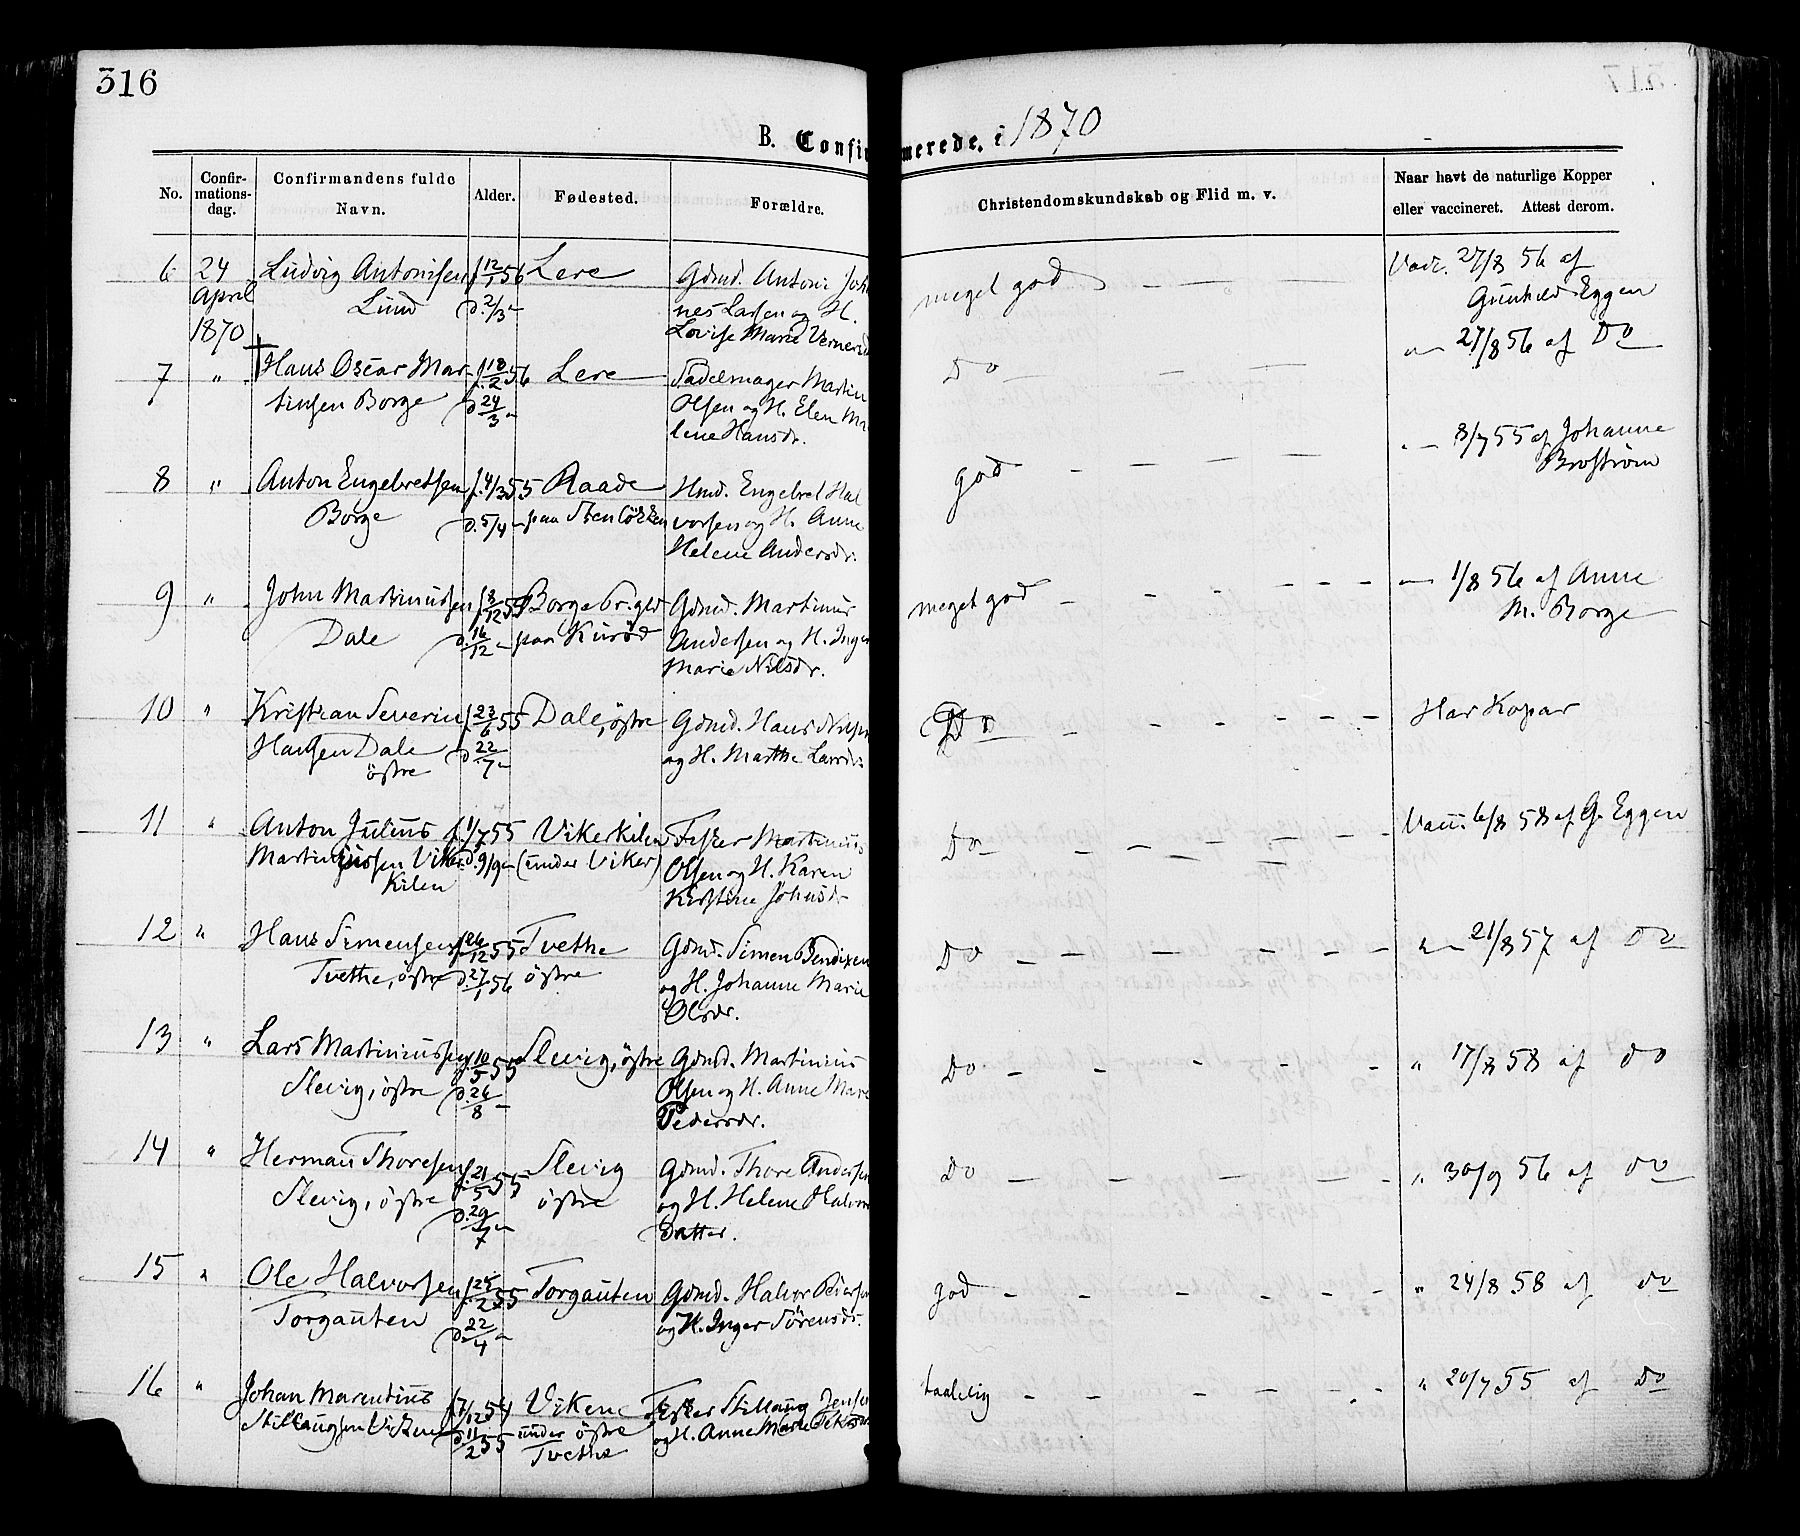 316
B. Confirmerede, i 1870
No.
Confirmationsdag.
Confirmandens fulde Navn.
Alder.
Fødested.
Forældre.
Christendomskundskab og Flid m. v.
Naar havt de naturlige Kopper eller vaccineret. Attest derom.
6 24 Ludvig Antonisen f. 12/1 56 Lere Gdmd. Anton Joh
April Lund d. 2/3 nes Larsen og H.
1870 Lovise Marie Verners
meget god — — — Vacc. 27/8 56 af
Gunhild Eggen
7 " Hans Oscar Mar f. 18/2 56 Lere Sadelmager Martin
tinsen Borge d 24/3 Olsen og H. Elen Ma
lene Hansdr.
Do — — — 27/8 56 af Do
8 " Anton Engebretsen f. 4/3 55 Raade Hmd. Engebret Hal
Borge d. 5/4 paa Stenløkken vorsen og H. Anne
Helene Andersdr.
god — — — 8/7 55 af Johanne
Brostrøm
9 " John Martinussen f. 8/12 55 Borge Pr.gld Gdmd. Martinus
Dale d. 16/12 paa Kurød Andersen og H. Inger
Marie Nilsdr.
meget god — — — 1/8 56 af Anne
M. Borge
10 " Kristian Severin f. 23/6 55 Dale, østre Gdmd. Hans Nilsen
Hansen Dale d 22/7 og H. Marthe Larsdr.
østre
Do — — — Har Kopar
11 " Anton Julius f. 1/7 55 Vikerkilen Fisker Martinius
Martiniussen Viker d. 9/9 (under Viker) Olsen og H. Karen
Kilen Kirstine Johnsdr
Do — — — Vacc. 6/8 58 af G. Eggen
12 " Hans Simensen f. 26/12 55 Tvethe Gdmd. Simen Bendixen
Tvethe, østre d. 27/1 56 østre og H. Johanne Marie
Olsdr.
Do — — — 21/8 57 af Do
13 " Lars Martiniussen f. 10/5 55 Slevig, østre Gdmd. Martinius
Slevig, østre d. 26/8 Olsen og H. Anne Mare
Pedersdr.
Do — — — " 17/8 58 af do
14 " Herman Thoresen f. 21/5 55 Slevig Gdmd. Thore Andersen
Slevig, østre d. 29/7 østre og H. Helene Halvors
Datter.
Do — — — " 30/9 56 af do
15 " Ole Halvorsen f. 25/2 55 Torgauten Gdmd. Halvor Peders
Torgauten d 22/4 og H. Inger Sörensdr.
god — — — " 24/8 58 af do
16 " Johan Marentius f. 7/12 54 Vikene Fisker Stillaug Jensen
Stillaugsen Vikene d 11/2 55 under østre og H. Anne Marie
Tvethe
taalelig — — — " 20/7 55 af Do